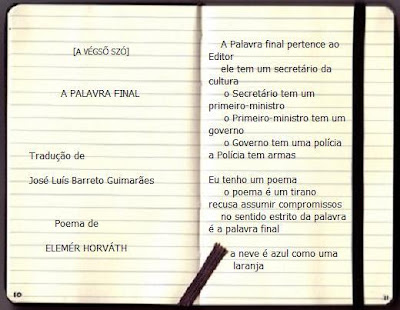 [A VÉGSŐ SZÓ]
A PALAVRA FINAL
Tradução de
José Luís Barreto Guimarães
Poema de
ELEMÉR HORVÁTH
10
A Palavra final pertence ao
Editor
ele tem um secretário da
cultura
o Secretário tem um
primeiro-ministro
o Primeiro-ministro tem um
governo
o Governo tem uma polícia
a Polícia tem armas
Eu tenho um poema
o poema é um tirano
recusa assumir compromissos
no sentido estrito da palavra
é a palavra final
a neve é azul como uma
laranja
11